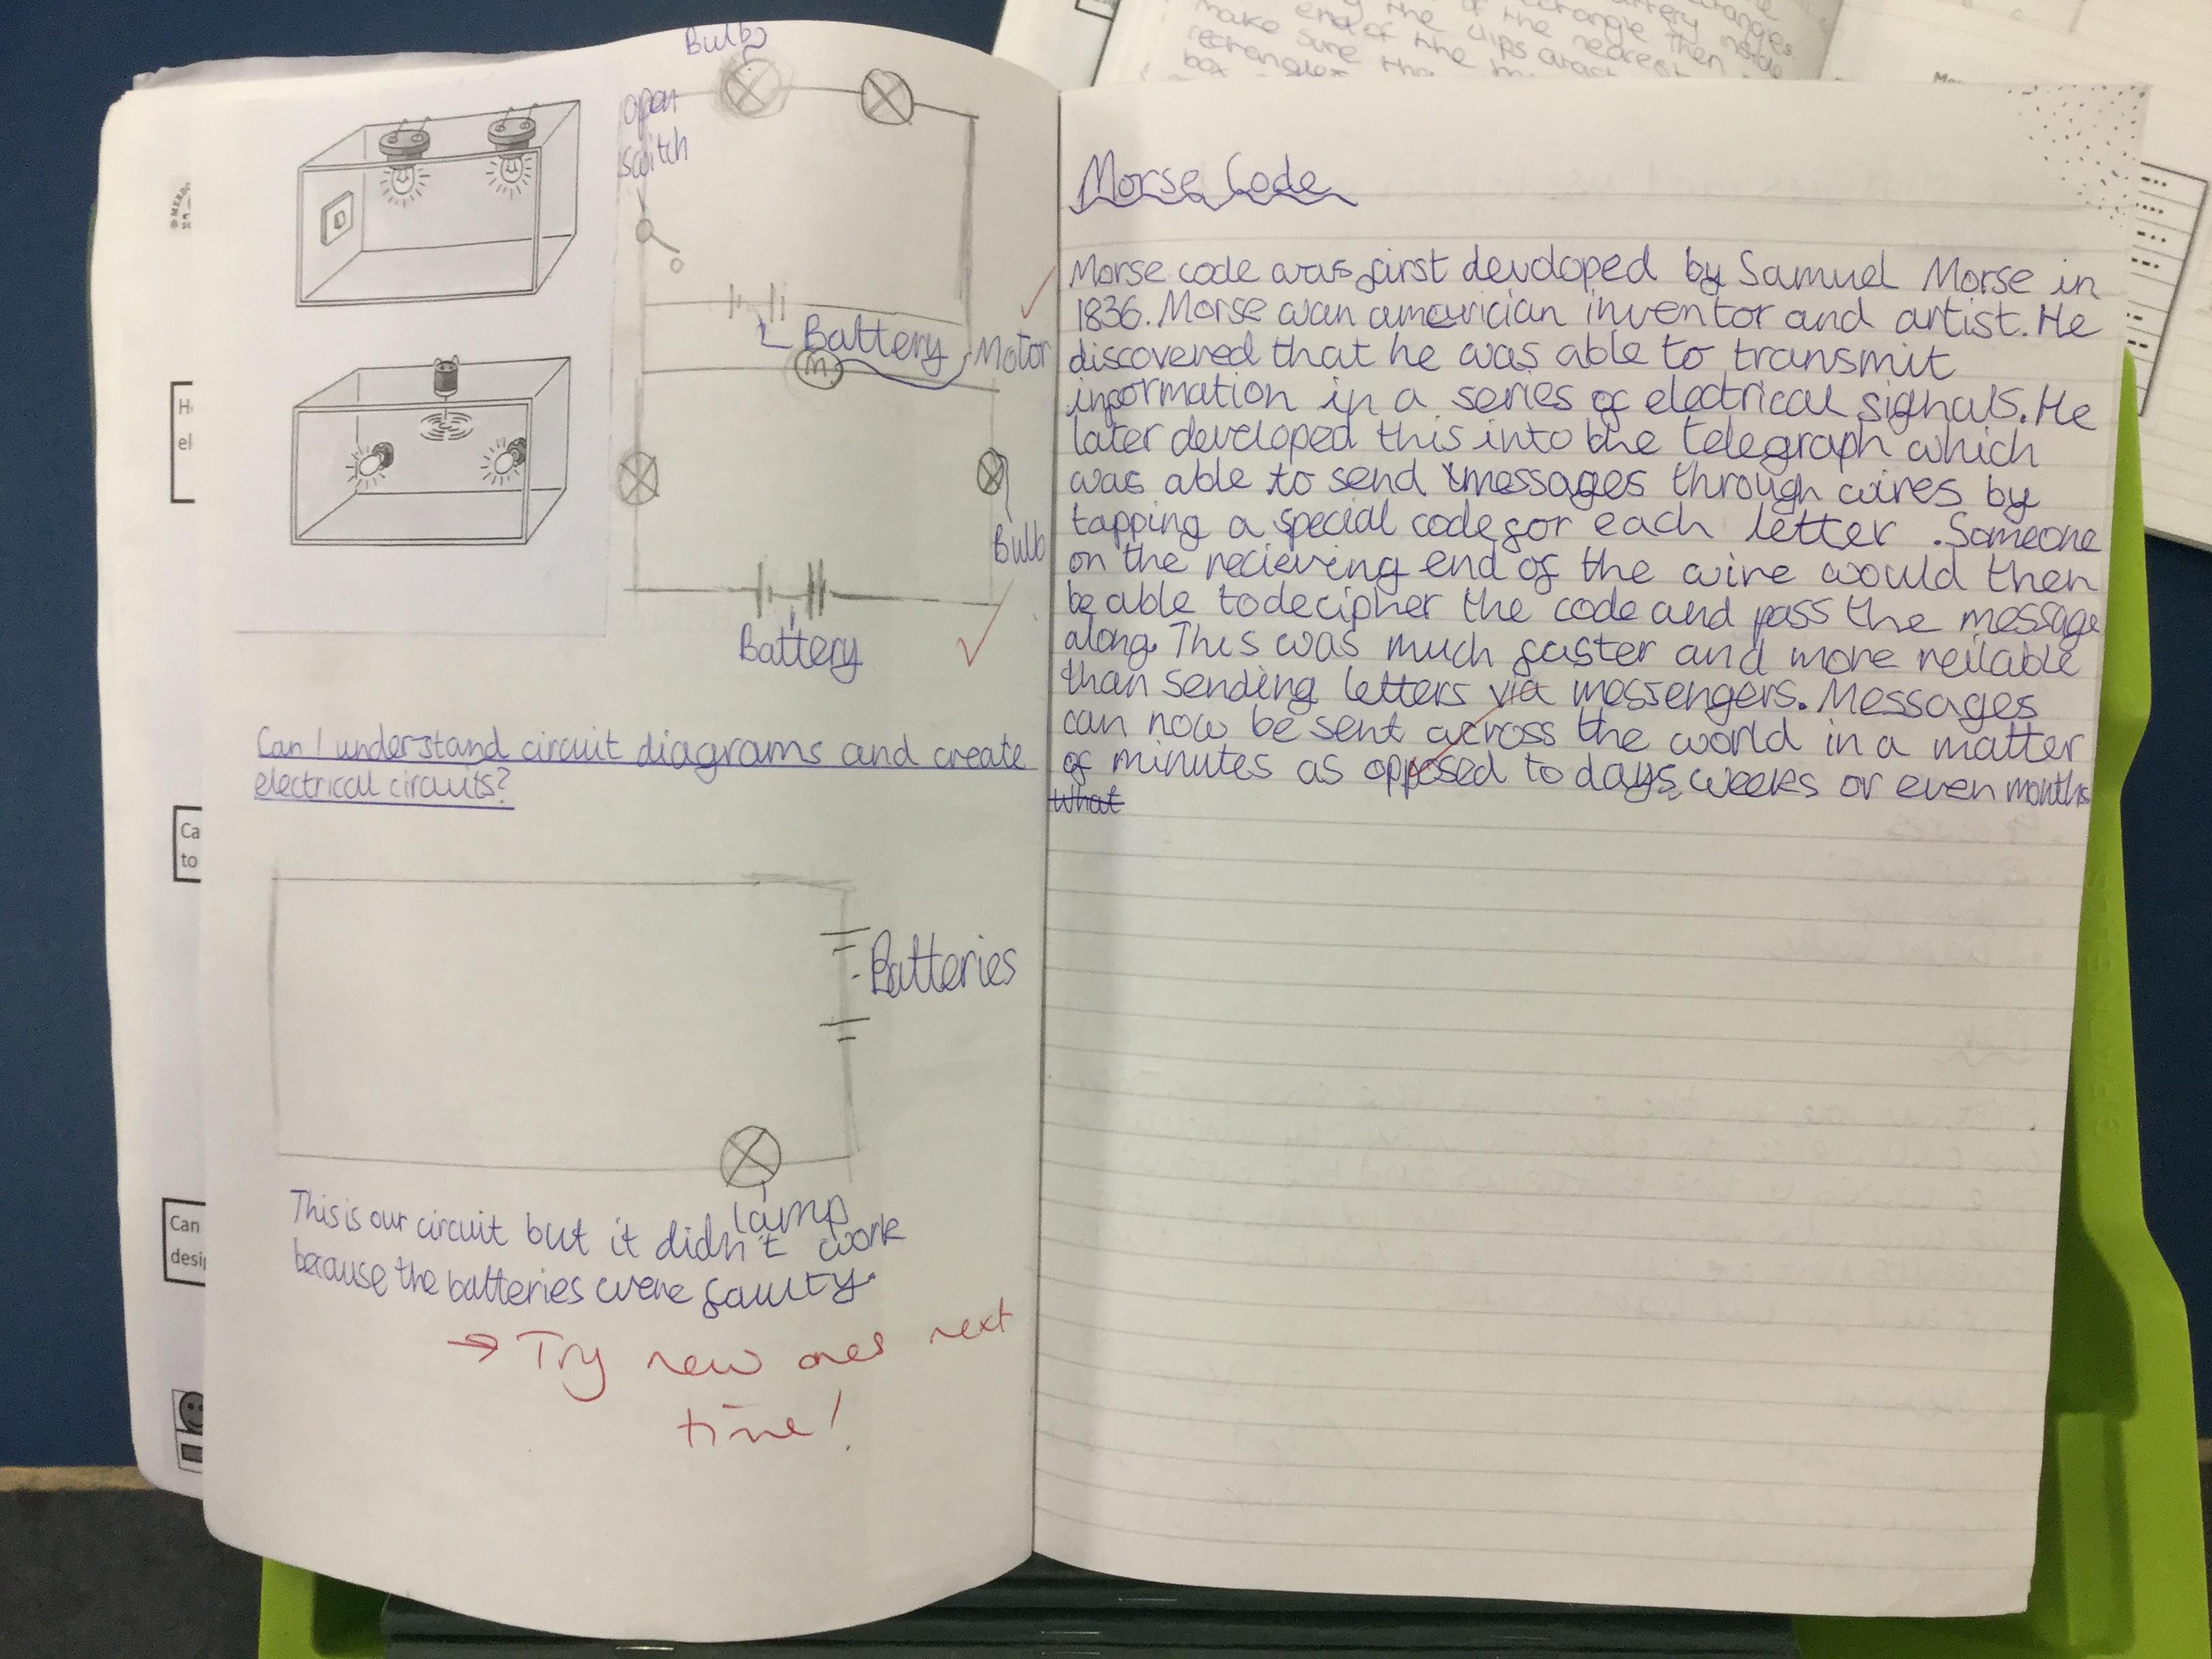 Bulbs
open
switch
Battery
Motor
M
Bulb
Battery
Can I understand circuit diagrams and create
electrical circuits?
Batteries
lamp
This is our circuit but it didn't work
because the batteries were faulty.
→ Try new ones next
time!
Morse Code
Morse code was first devdoped by Samuel Morse in
1836. Morse wan amcurician inventor and artist. He
discovered that he was able to transmit
information in a series of electrical signals. He
later developed this into the telegraph which
was able to send messages through wires by
tapping a special code for each letter. Someone
on the recieving end of the wire would then
be able to decipher the code and pass the message
along. This was much faster and more reilable
than sending letters via messengers. Messages
can now be sent across the world in a matter
of minutes as opposed to days, weeks or even months
What
H
el
Ca
to
Can
desi
battery inside
of the rectangle. Then
the clips
the nearest
make sure
end of the
rectangles
box